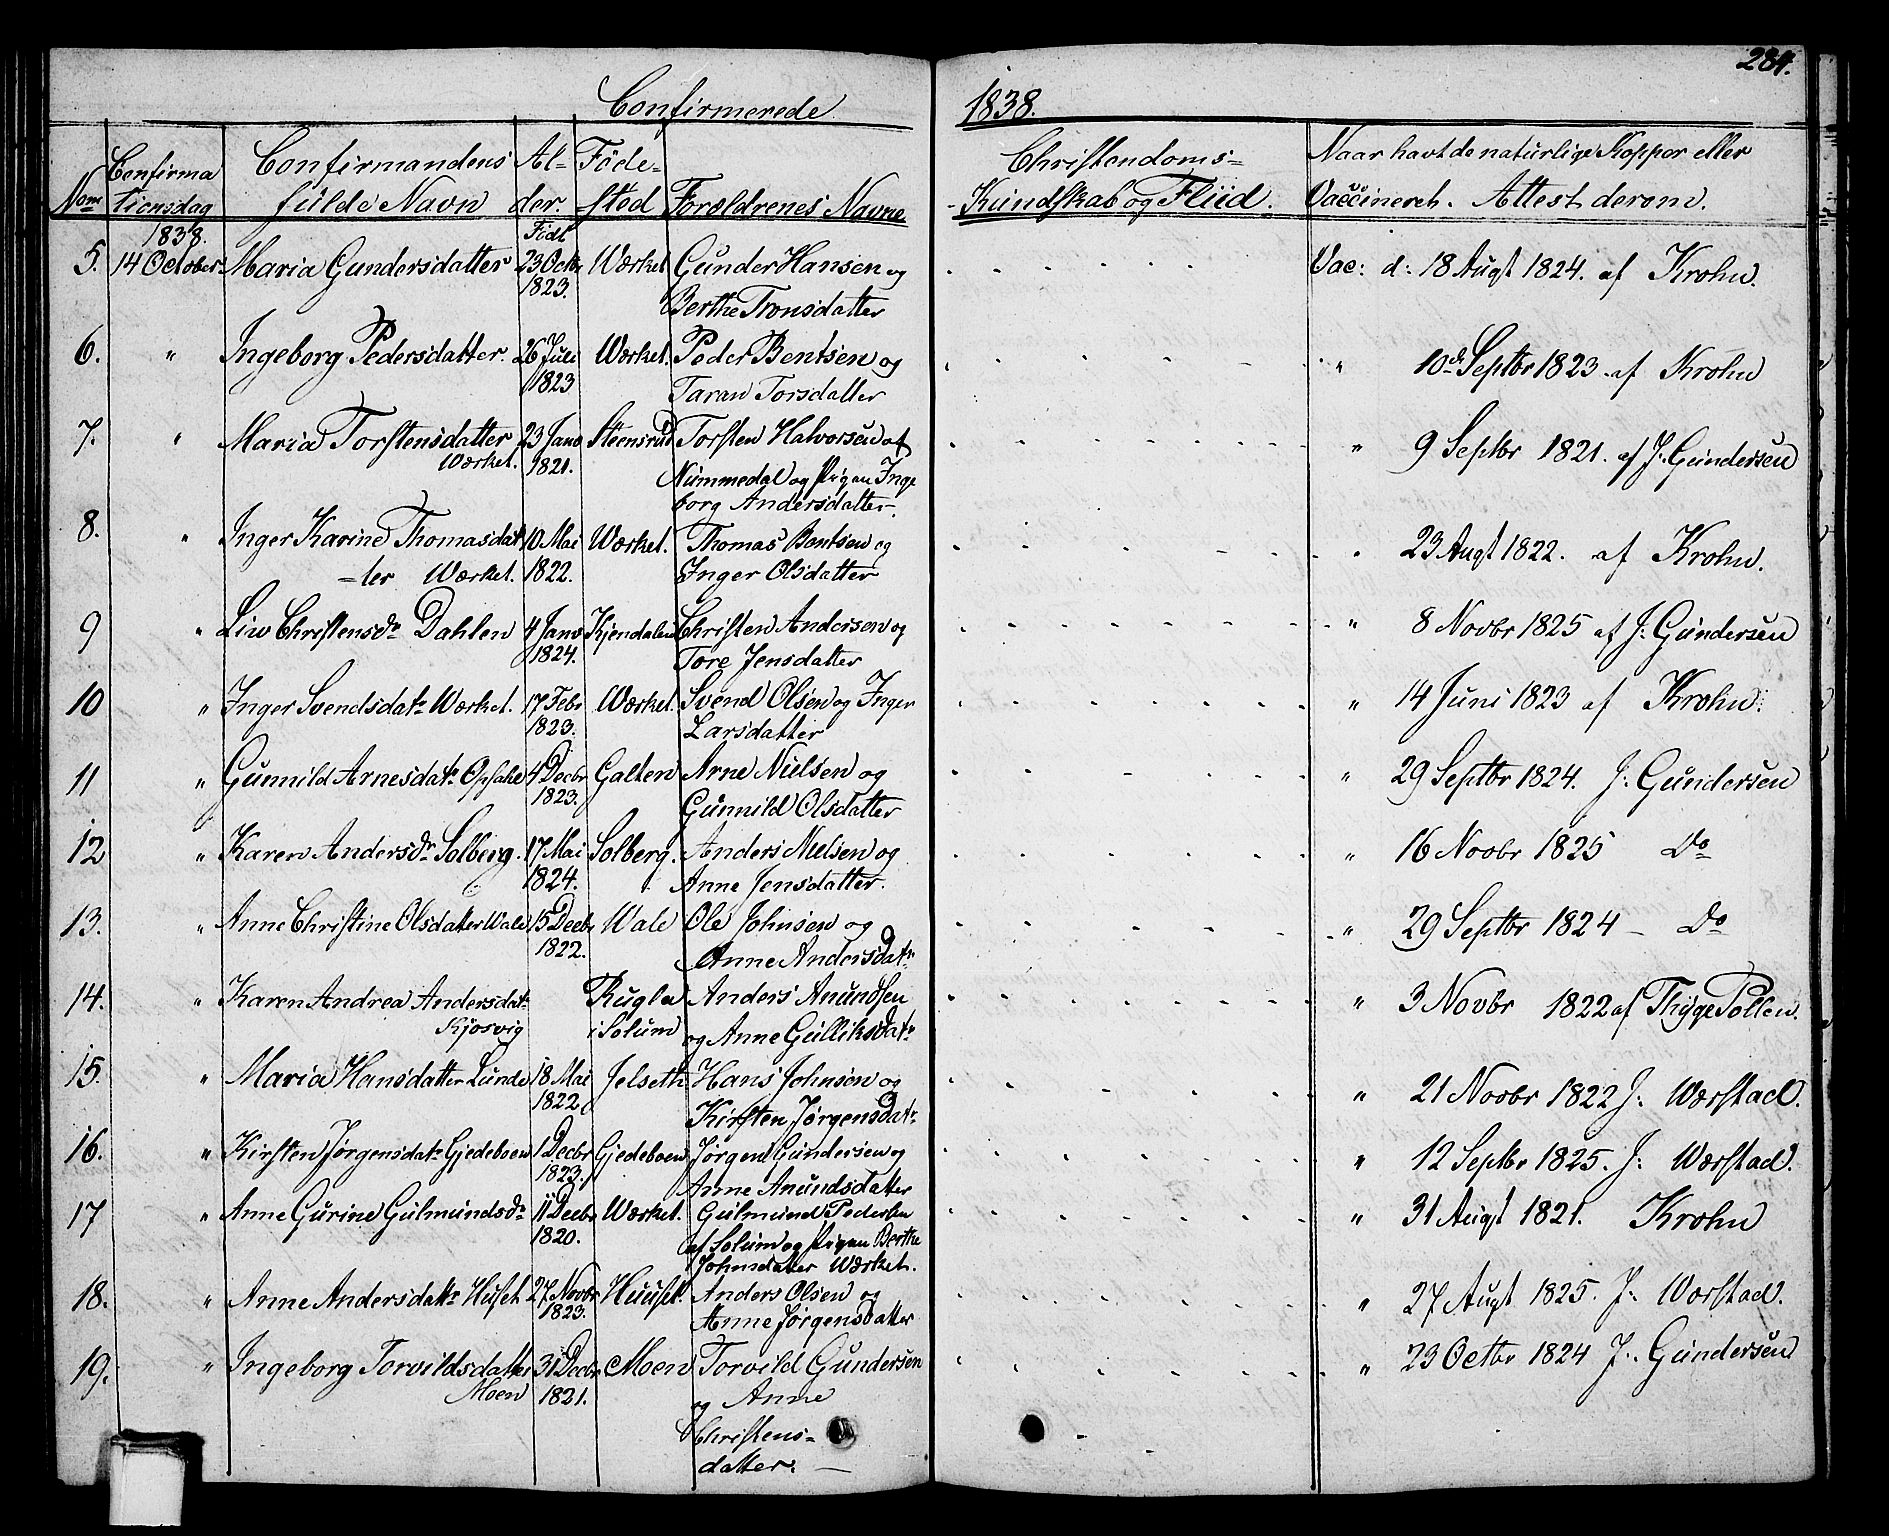 284.
Confirmerede 1838.
Nom Confirmationsdag Confirmandens fulde Navn Alder. Fødested Forældrenes Navne Christendoms-Kundskab og Fliid. Naar havt de naturlige Kopper eller Vaccineret. Attest derom.
1838. Födt
5. 14 October Maria Gundersdatter 23 Octbr Wærket Gunder Hansen og Vac: d: 18 Augt 1824. af Krohn.
1823. Berthe Tronsdatter
6. " Ingeborg Pedersdatter. 26 Juli Wærket. Peder Bentsen og " 10de Septbr 1823 af Krohn
1823 Taran Torsdatter
7. " Maria Torstensdatter 23 Janv Steensrud Torsten Halvorsen af " 9 Septbr 1821. af J: Gundersen
Wærket. 1821. Nummedal og Pigen Inge
borg Andersdatter.
8. " Inger Karine Thomasdat 10 Mai Wærket. Thomas Bentsen og " 23 Augt 1822. af Krohn.
=ter Wærket. 1822. Inger Olsdatter
9 " Liv Christensdr Dahlen 4 Janv Kjendalen Christen Andersen og " 8 Novbr 1825 af J: Gundersen
1824. Tore Jensdatter
10 " Inger Svendsdatr Wærket. 17 Febr Wærket. Svend Olsen og Inger " 14 Juni 1823 af Krohn.
1823. Larsdatter
11 " Gunnild Arnesdatr Opsahl 4 Decbr Galten Arne Nielsen og " 29 Septbr 1824. J: Gundersen
1823. Gunnild Olsdatter
12 " Karen Andersdr Solberg. 17 Mai Solberg. Anders Nielsen og " 16 Novbr 1825 Do
1824. Anne Jensdatter.
13. " Anne Christine Olsdatter Wale 15 Decbr Wale Ole Johnsen og " 29 Septbr 1824 - Do
1822. Anne Andersdatr
14. " Karen Andrea Andersdatr Rugla Anders Anundsen " 3 Novbr 1822 af Thyge Pollen.
Kjosvig i Solum og Anne Gulliksdatr
15. " Maria Hansdatter Lunde 18 Mai Jelseth Hans Johnsen og " 21 Novbr 1822 J: Wærstad.
1822 Kirsten Jørgensdatr
16. " Kirsten Jørgensdatr Gjedeboen 1 Decbr Gjedeboen Jørgen Gundersen og " 12 Septbr 1825. J: Wærstad.
1823. Anne Anundsdatter
17 " Anne Gurine Gulmundsdr 11 Decbr Wærket. Gulmund Pedersen " 31 Augt 1821. Krohn
1820. af Solum og Pigen Berthe
Johnsdatter Wærket.
18. " Anne Andersdatr Huset 27 Novbr Huuset. Anders Olsen og " 27 Augt 1825. J: Worstad.
1823. Anne Jørgensdatter
19. " Ingeborg Torvildsdatter 31 Decbr Moen Torvild Gundersen " 23 Octbr 1824 J: Gundersen
Moen 1821. og Anne
Christens=
datter. —